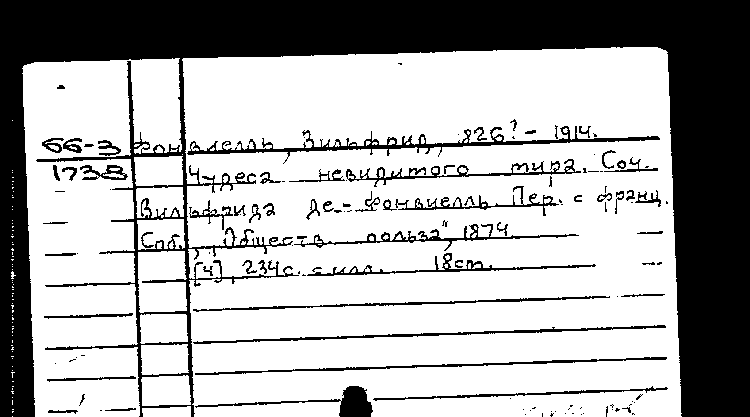 66-3 Фонвиелль, Вильфрид, 826? - 1914.
1738 Чудеса невидимого мира. Соч.
Вильфрида де-Фонвиелль. Пер. с франц.
Спб., „Обществ. польза", 1874
[4], 234с. с илл. 18ст.